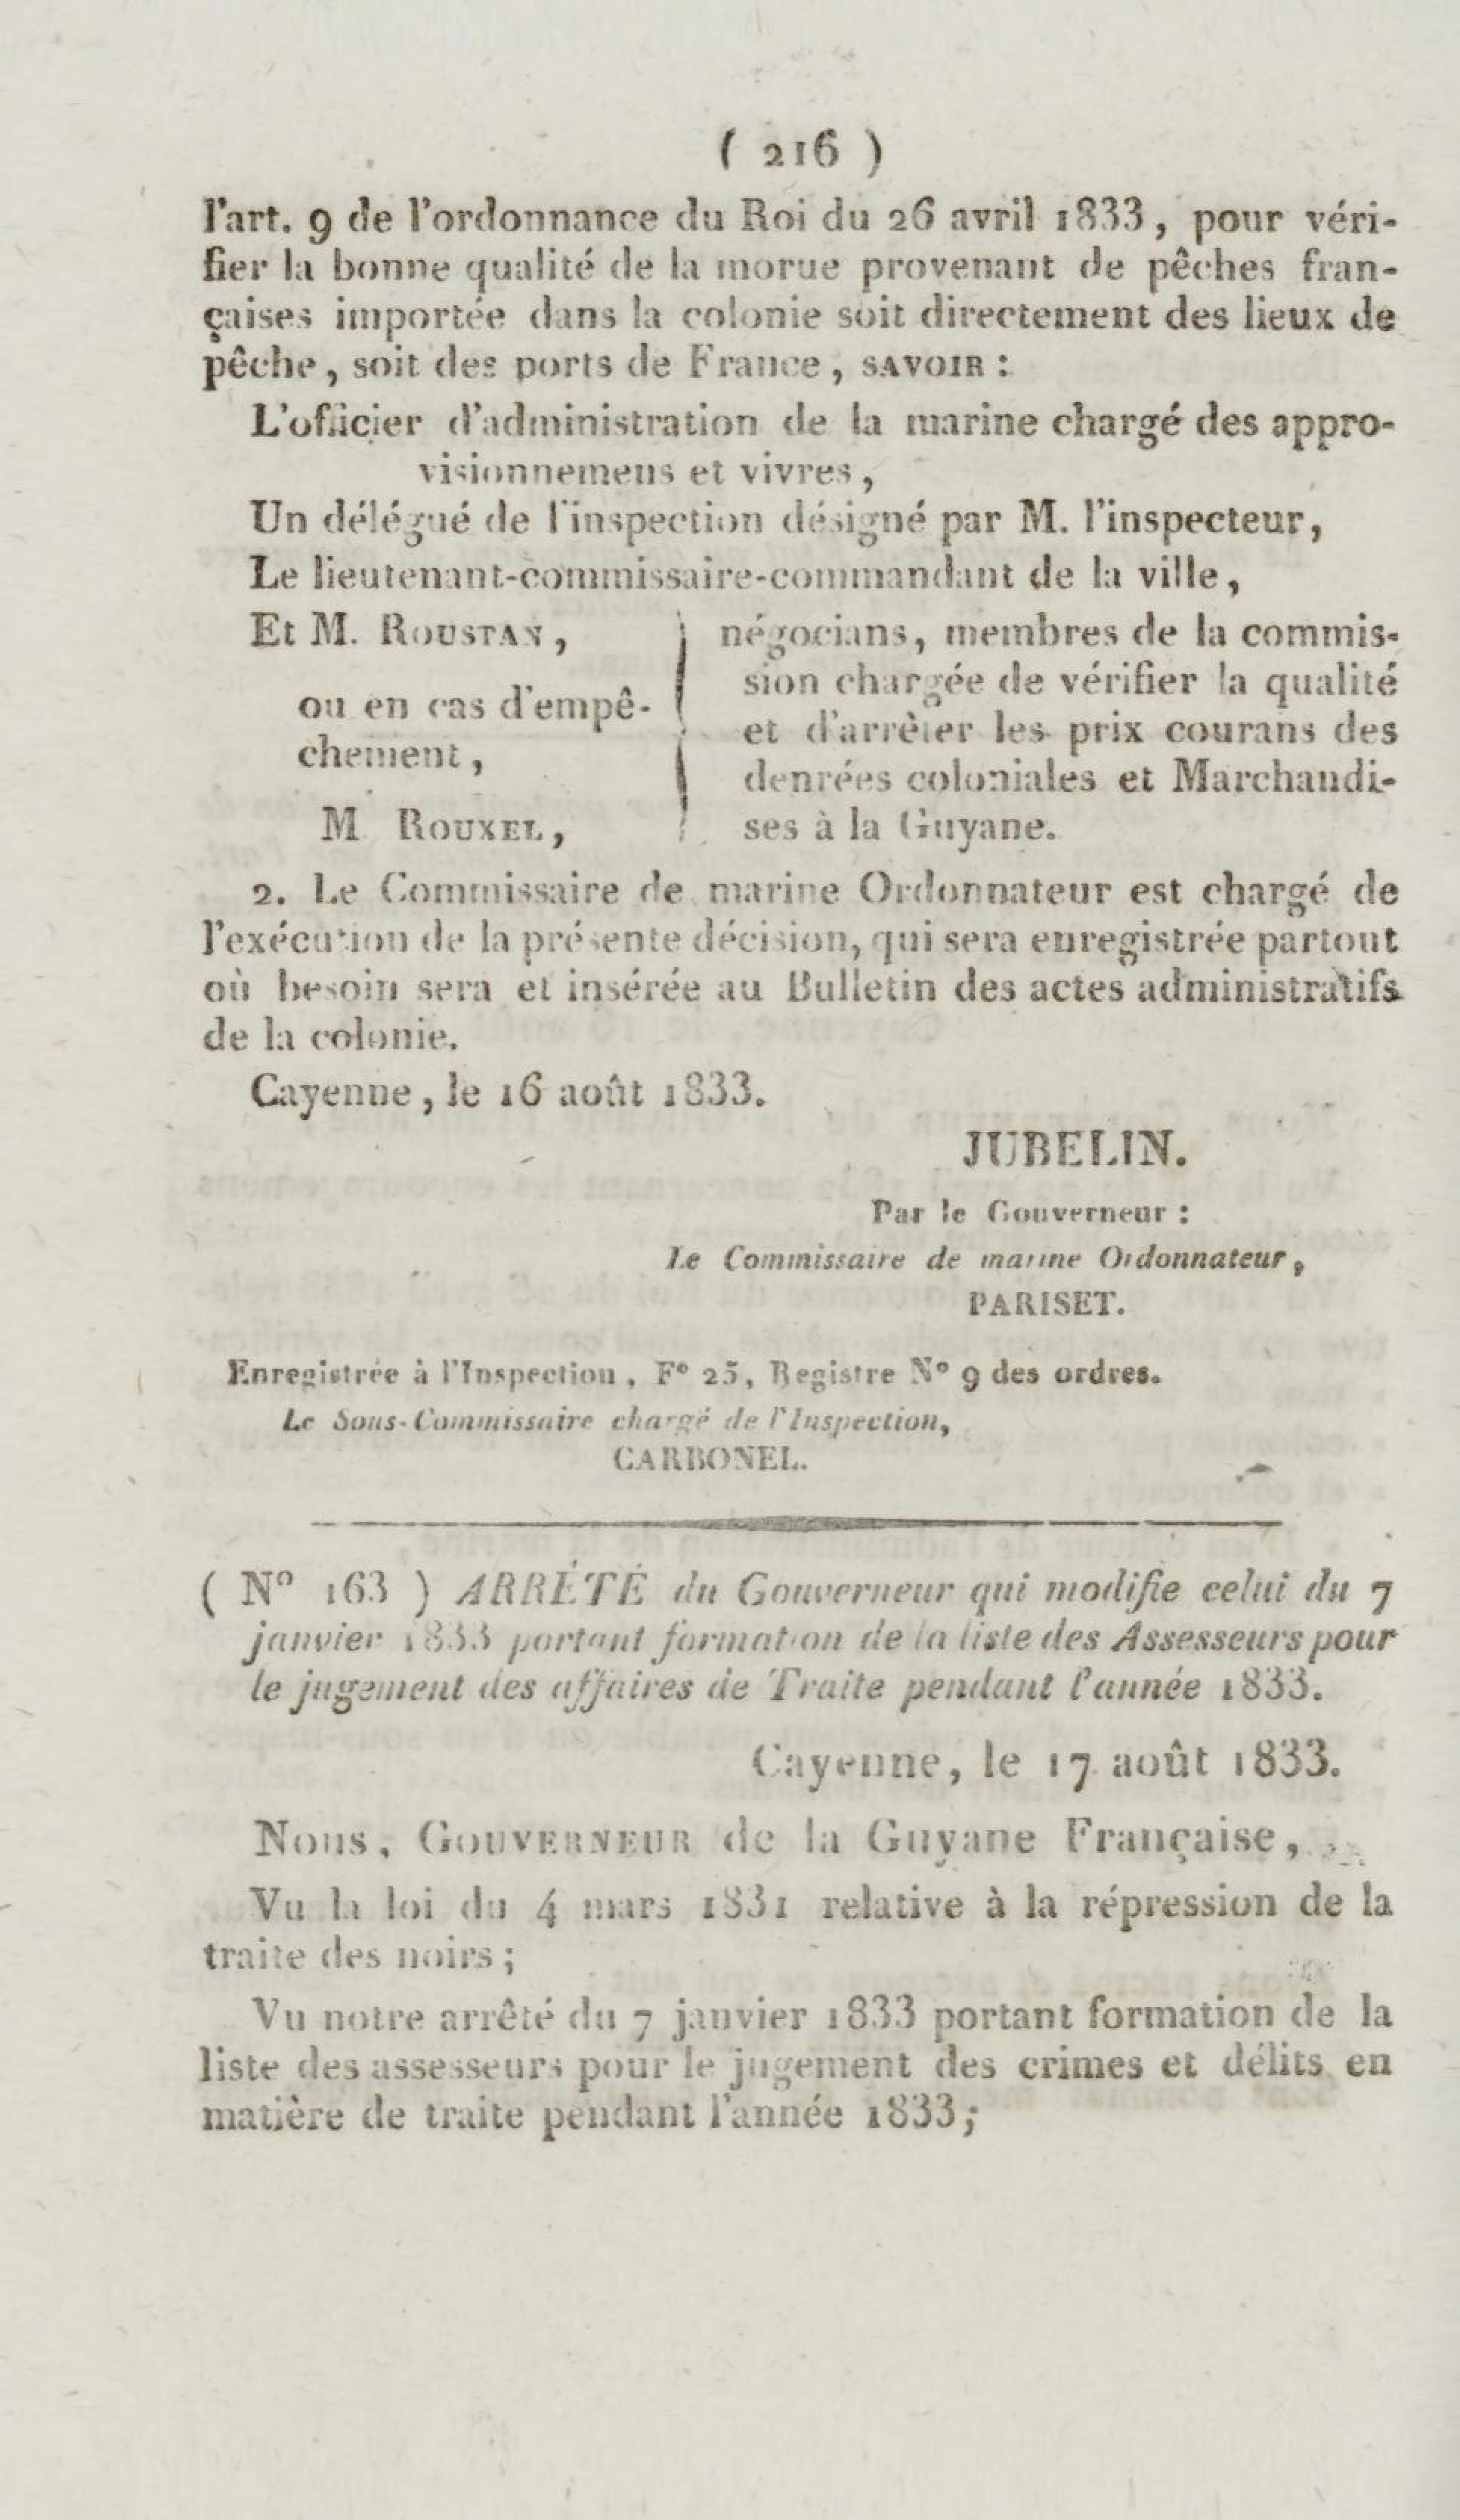 ( 216 )
l'art. 9 de l'ordonnance du Roi du 26 avril 1833, pour véri-
fier la bonne qualité de la morue provenant de pêches fran-
çaises importée dans la colonie soit directement des lieux de
pêche, soit des ports de France, SAVOIR :
L'officier d'administration de la marine chargé des appro-
visionnemens et vivres,
Un délégué de l'inspection désigné par M. l'inspecteur,
Le lieutenant-commissaire-commandant de la ville,
Et M. ROUSTAN,
ou en cas d'empê-
chement,
M ROUXEL,
négocians, membres de la commis-
sion chargée de vérifier la qualité
et d'arrêter les prix courans des
denrées coloniales et Marchandi-
ses à la Guyane.
2. Le Commissaire de marine Ordonnateur est chargé de
l'exécution de la présente décision, qui sera enregistrée partout
où besoin sera et insérée au Bulletin des actes administratifs
de la colonie.
Cayenne, le 16 août 1833.
JUBELIN.
Par le Gouverneur :
Le Commissaire de marine Ordonnateur,
PARISET.
Enregistrée à l'Inspection, F° 25, Registre N° 9 des ordres.
Le Sous-Commissaire chargé de l'Inspection,
CARBONEL.
( N° 163 ) ARRÊTÉ du Gouverneur qui modifie celui du 7
janvier 1833 portant formation de la liste des Assesseurs pour
le jugement des affaires de Traite pendant l'année 1833.
Cayenne, le 17 août 1833.
Nous, GOUVERNEUR de la Guyane Française,
Vu la loi du 4 mars 1831 relative à la répression de la
traite des noirs ;
Vu notre arrêté du 7 janvier 1833 portant formation de la
liste des assesseurs pour le jugement des crimes et délits en
matière de traite pendant l'année 1833;